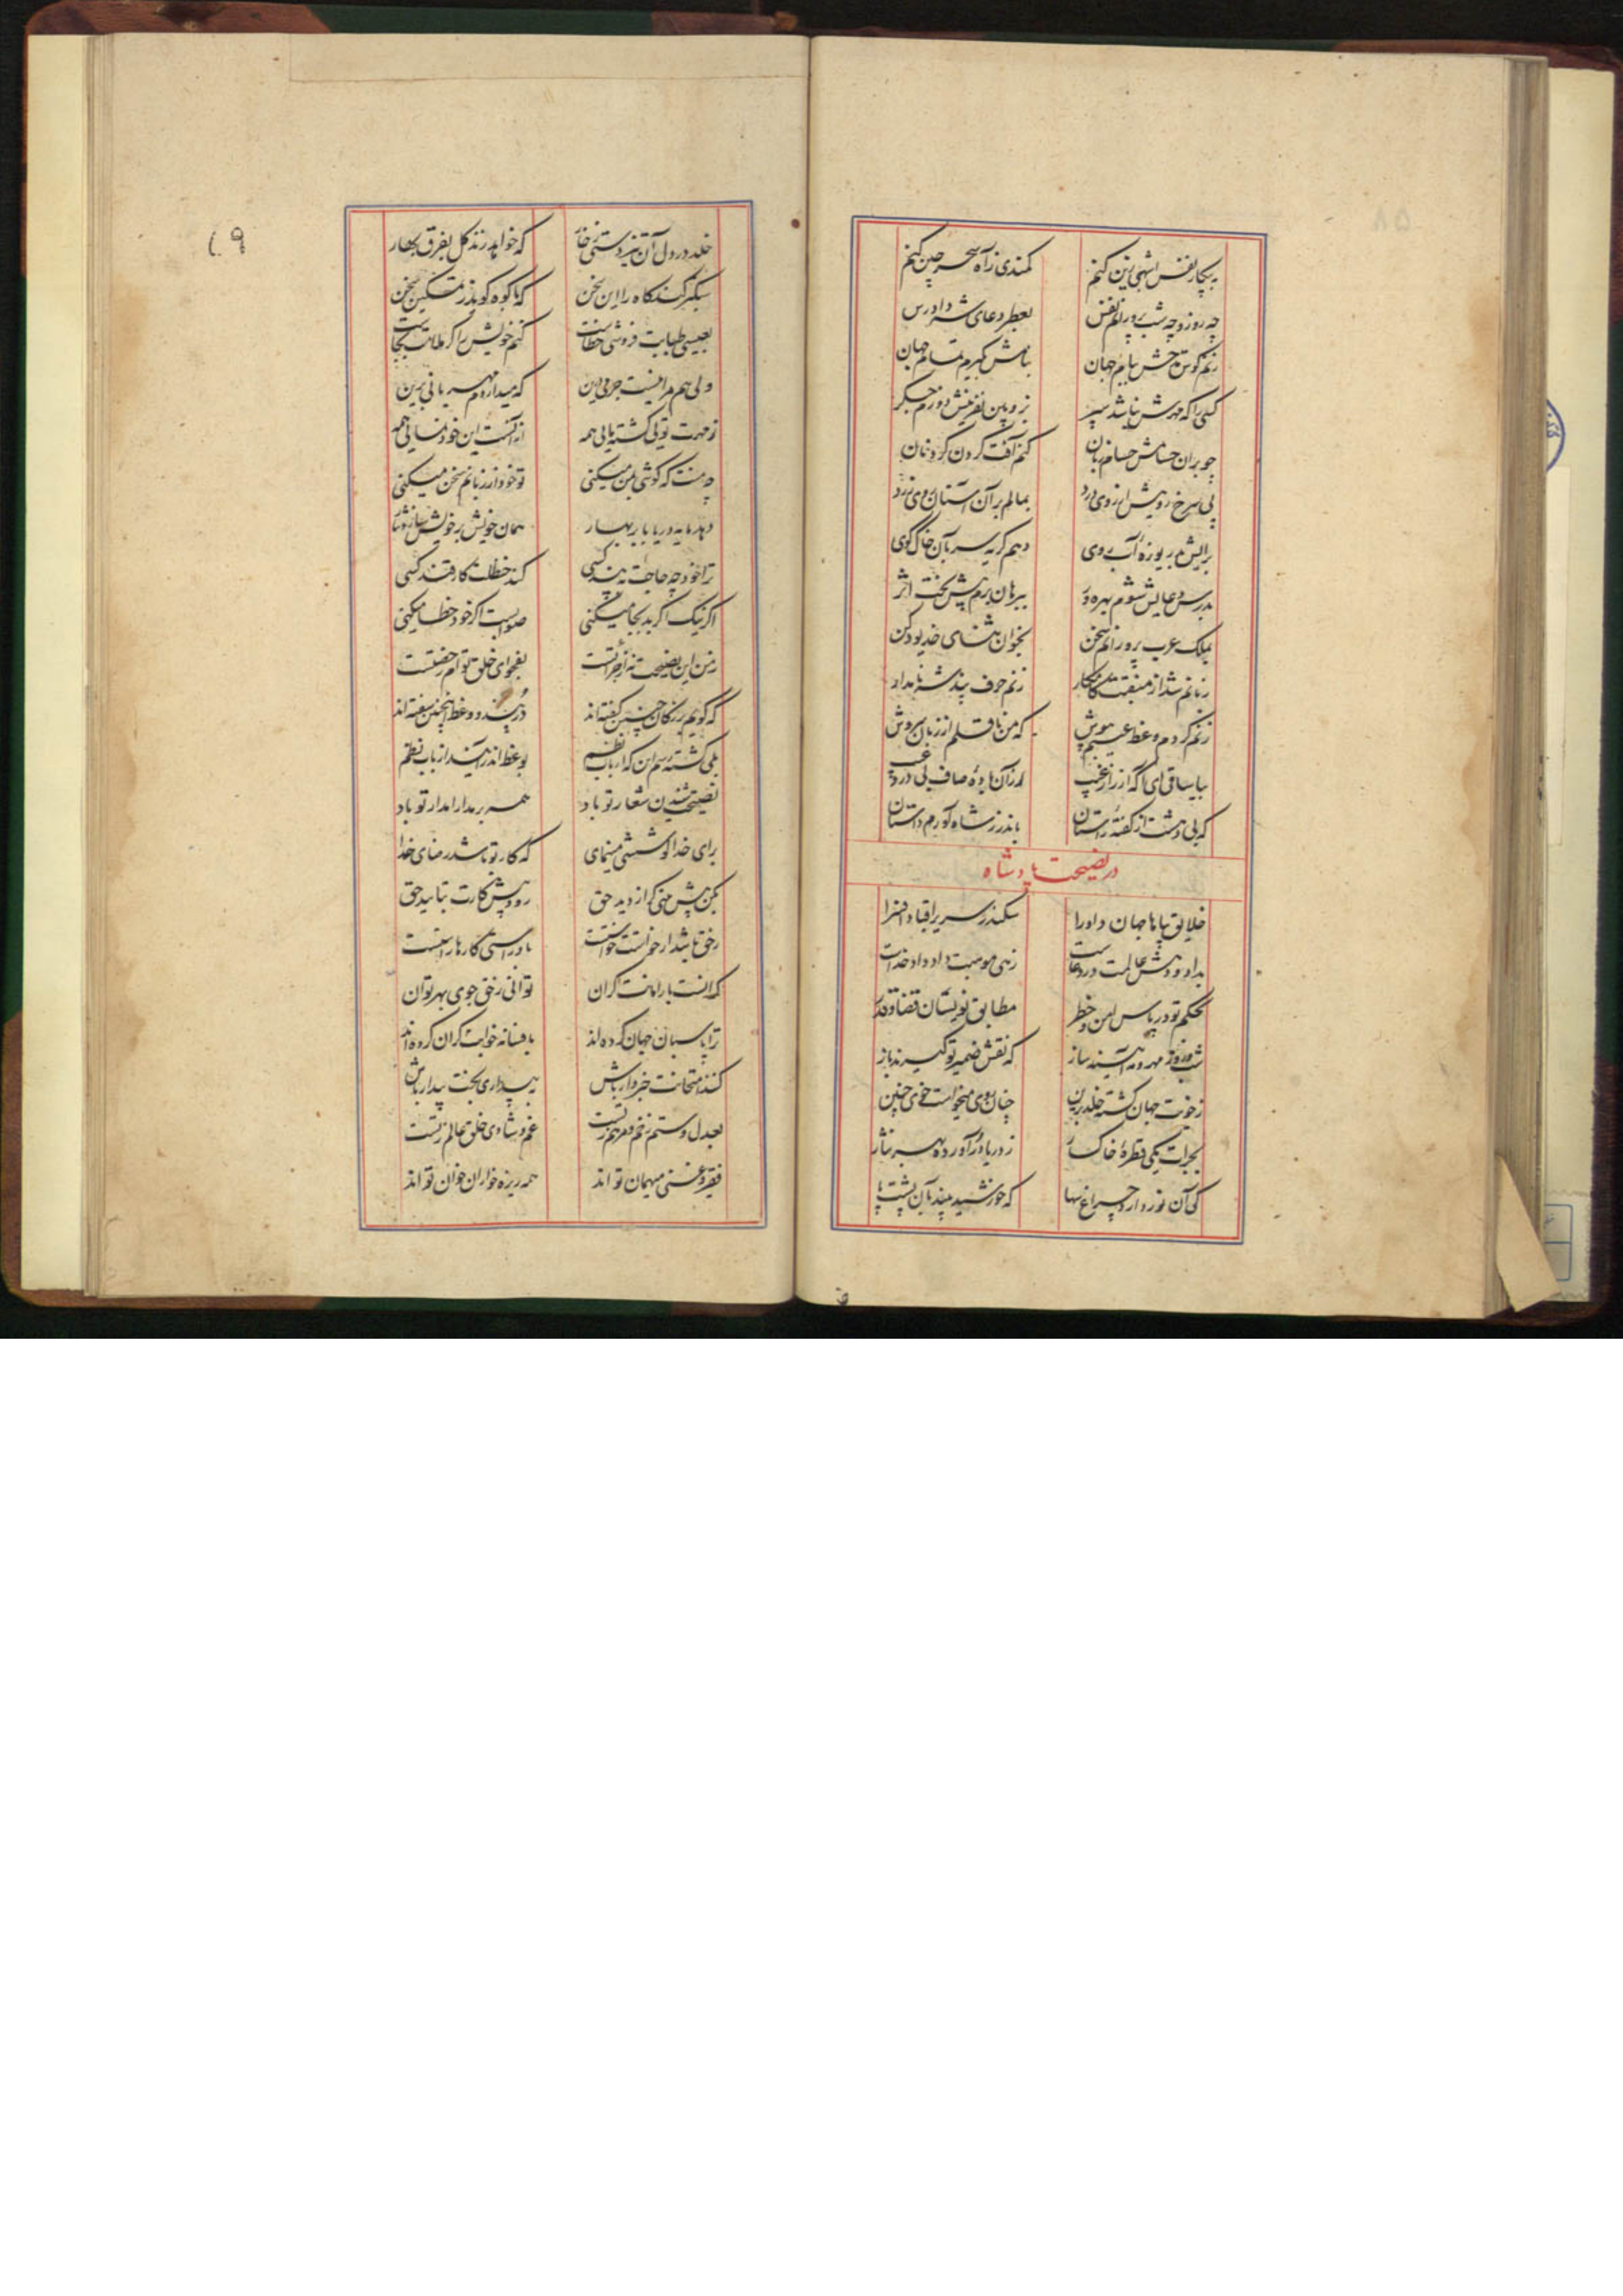 به پیکار نفس اشهبی زین کنم کمندی ز آه سحر چین کنم
چه روز و چه شب پرورانم نفس بعطر دعای شه دادرس
زنم کوس مدحش ببام جهان بنامش بگیرم تمام جهان
کسی را که مهرش نباشد سپر ز نفرینش دوزم جگر
چو بران حسامش حسام زبان کنم آفت گردن گردنان
پی سرخ رویش از روی درد بمالم بر آن آستان روی زرد
برایش بدریوزه آب روی دهم گریه سر بآن خاک کوی
بدرس دعایش شوم بهره ور ببرهان برم پیش بخت اثر
بملک عرب پرورانم سخن بخوان ثنای خدیو دکن
زبانم شد از منقبت کامکار زنم حرف پند شه نامدار
رقم کردم وعظ که من ناقلم از زبان سروش
بیا ساقی ای از آن باده صاف بی درد
که بی دهشت از گفته راستان باندرز شاه آورم داستان
در نصیحت پادشاه
خلایق پناها جهان داورا سکندر سریرا قباد افسرا
بداد و دهش عالمت در دعاست زهی موهبت داد داد خداست
بحکم تو در پاس امن و خطر مطابق نویسان قضا و قدر
شب و روز مهر و مه آیینه ساز که نقش ضمیر تو گیرند باز
ز خویت جهان گشته خلد برین چنان روی میخواست خوی چنین
یکی قطره خاکسار ز دریا در آورده بهر نثار
کی آن نور دارد چراغ سها که خورشید بیند بآن پشت پا
خلد در دل آن تیز دستی خار که خواهد زند گل بفرق بهار
سبکتر کند کاه را این سخن که با کوه گوید ز تمکین سخن
بعیسی طبابت فروشی خطاست کنم خویش را گر ملامت بجاست
ولی هم مرا نیست جرمی درین که میدارم مهربانی برین
توئی گشته مائی همه از آنست این خودنمائی همه
چه منت که گوشی بمن میکنی تو خود از زبانم سخن میکنی
دهد مایه دریا بابر بهار همان خویش بر خویش سازد نثار
ترا خود چه حاجت به پند کسی کند خطات کار قند کسی
اگر نیک اگر بد بجا میکنی صوابست اگر خود خطا میکنی
ز من این نصیحت نه از جراتست بفحوای خلق توام رخصتست
که گویم بزرگان چنین گفته اند در پند و وعظ اینچنین سفته اند
بلی گشته رسم این که ارباب نظم بوعظ اندر آیند از باب نظم
نصیحت شنیدن شعار تو باد همه بر مدارا مدار تو باد
برای خدا کوششی مینمای که کار تو باشد رضای خدا
بکن پیش بینی که از دید حق رود پیش کارت بتایید حق
ز حق باشد ار خواست خواستت باو راستی کارها راستت
گرانست بار امانت گران توانی ز حق جوی بهر توان
ترا پاسبان جهان کرده اند بافسانه خوابت گران کرده اند
کند امتحانت خبردار باش به بیداری بخت بیدار باش
بعدل و ستم زخم و مرهم ز تست غم و شادی خلق عالم ز تست
فقیر و غنی میهمان تو اند همه ریزه خواران خوان تو اند